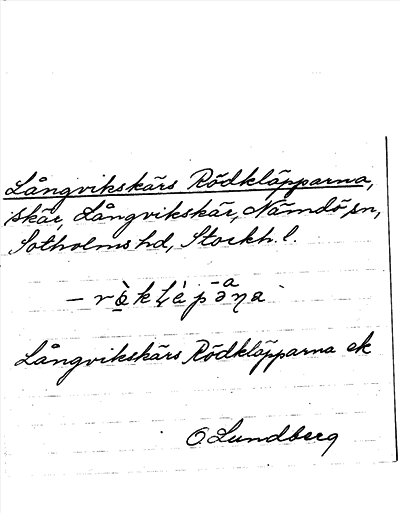 Långvikskärs Rödkläpparna,
skär, Långvikskär, Nämdö sn,
Sotholms hd, Stockh. l.
Långvikskärs Rödkläpparna ek
O Lundberg